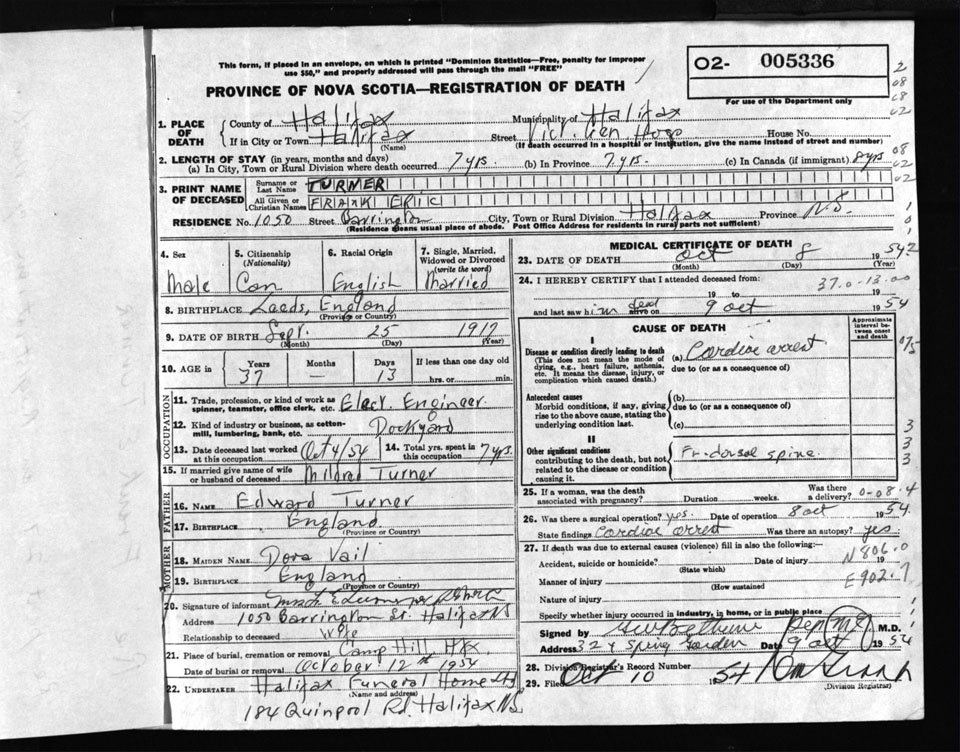 This form, if placed in an envelope, on which is printed "Dominion Statistics—Free, penalty for improper
use $50," and properly addressed will pass through the mail "FREE"
PROVINCE OF NOVA SCOTIA—REGISTRATION OF DEATH
O2- 005336
For use of the Department only
2
08
08
02
1. PLACE OF DEATH County of Halifax Municipality of Halifax
If in City or Town Halifax Street Vict. Gen Hosp House No.
(Name) (If death occurred in a hospital or institution, give the name instead of street and number)
2. LENGTH OF STAY (in years, months and days) 08
(a) In City, Town or Rural Division where death occurred 7 yrs. (b) In Province 7 yrs. (c) In Canada (if immigrant) 8 yrs 02
3. PRINT NAME OF DECEASED Surname or Last Name TURNER 02
All Given or Christian Names FRANK ERIC
RESIDENCE No. 1050 Street Barrington City, Town or Rural Division Halifax Province N.S.
(Residence means usual place of abode. Post Office Address for residents in rural parts not sufficient)
4. Sex Male
5. Citizenship (Nationality) Can
6. Racial Origin English
7. Single, Married, Widowed or Divorced (write the word) Married
8. BIRTHPLACE Leeds, England
(Province or Country)
9. DATE OF BIRTH Sept. 25 1917
(Month) (Day) (Year)
10. AGE in Years 37 Months — Days 13 If less than one day old
hrs. or min.
OCCUPATION
11. Trade, profession, or kind of work as
spinner, teamster, office clerk, etc. Elect. Engineer
12. Kind of industry or business, as cotton-
mill, lumbering, bank, etc. Dockyard
13. Date deceased last worked at this occupation Oct 4/54 14. Total yrs. spent in this occupation 7 yrs.
15. If married give name of wife
or husband of deceased Mildred Turner
FATHER
16. NAME Edward Turner
17. BIRTHPLACE England
(Province or Country)
MOTHER
18. MAIDEN NAME Dora Vail
19. BIRTHPLACE England
(Province or Country)
20. Signature of informant
Address 1050 Barrington St. Halifax NS
Relationship to deceased Wife
21. Place of burial, cremation or removal Camp Hill, Hfx
Date of burial or removal October 12th 1954
22. UNDERTAKER Halifax Funeral Home Ltd
(Name and address)
184 Quinpool Rd. Halifax NS
MEDICAL CERTIFICATE OF DEATH
23. DATE OF DEATH Oct 8 1954
(Month) (Day) (Year)
24. I HEREBY CERTIFY that I attended deceased from:
37.0-13.00
19 to 19
and last saw him dead alive on 9 Oct 1954
CAUSE OF DEATH
Approximate interval between onset and death
I
Disease or condition directly leading to death
(This does not mean the mode of dying, e.g., heart failure, asthenia, etc. It means the disease, injury, or complication which caused death.)
(a) Cardiac arrest
due to (or as a consequence of)
Antecedent causes
Morbid conditions, if any, giving rise to the above cause, stating the underlying condition last.
(b)
due to (or as a consequence of)
(c) 3
II
Other significant conditions
contributing to the death, but not related to the disease or condition causing it.
Fr. dorsal spine
3
3
25. If a woman, was the death associated with pregnancy? Duration weeks. Was there a delivery? 0-08.4
26. Was there a surgical operation? yes. Date of operation 8 Oct 1954
State findings Cardiac arrest Was there an autopsy? yes
27. If death was due to external causes (violence) fill in also the following:—
N806.0
Accident, suicide or homicide? Date of injury 19
(State which)
E902.7
Manner of injury
(How sustained)
Nature of injury
Specify whether injury occurred in industry, in home, or in public place
Signed by Dep (M.E) M.D.
Address 324 Spring Garden Date 9 Oct 1954
28. Division Registrar's Record Number
29. Filed Oct 10 1954
(Division Registrar)